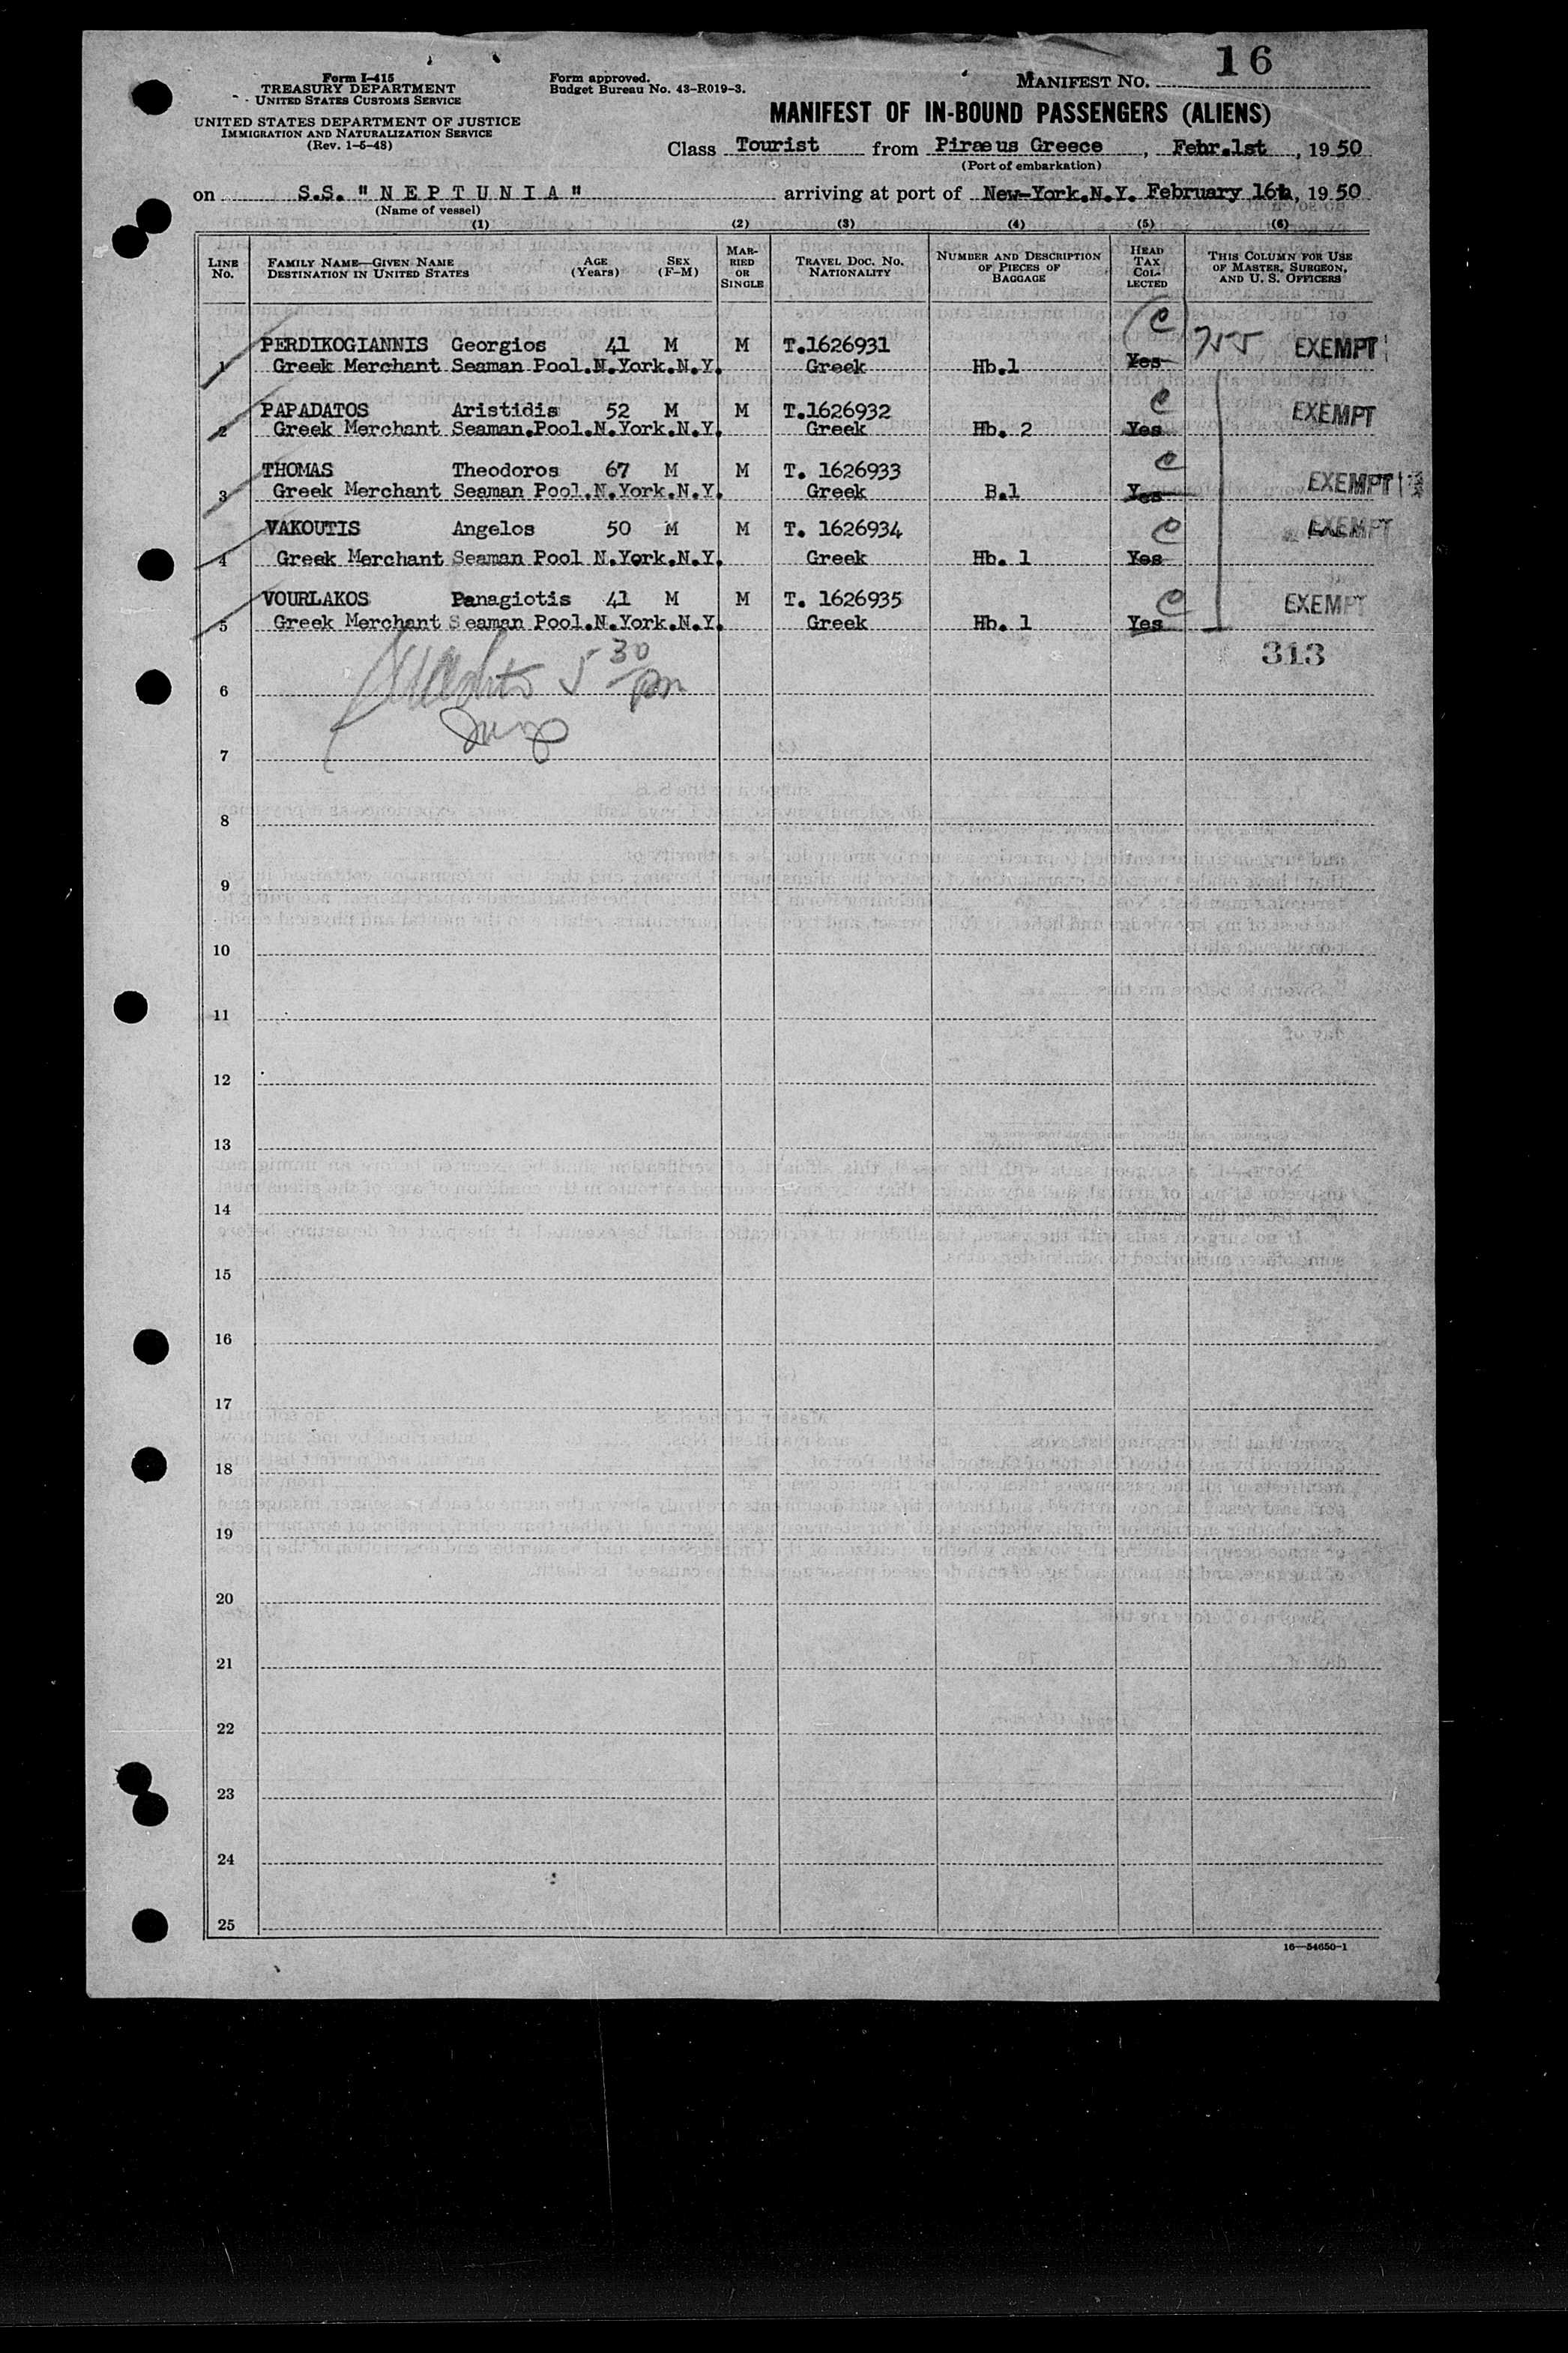 16
Form I-415
TREASURY DEPARTMENT
UNITED STATES CUSTOMS SERVICE
UNITED STATES DEPARTMENT OF JUSTICE
IMMIGRATION AND NATURALIZATION SERVICE
(Rev. 1-5-48)
Form approved.
Budget Bureau No. 43-R019-3.
MANIFEST NO.
MANIFEST OF IN-BOUND PASSENGERS (ALIENS)
Class Tourist from Piræus Greece, Febr.1st, 19 50
(Port of embarkation)
on S.S. "N E P T U N I A" arriving at port of New-York.N.Y. February 16th, 19 50
(Name of vessel)
(1) (2) (3) (4) (5) (6)
LINE No. FAMILY NAME—GIVEN NAME DESTINATION IN UNITED STATES AGE (Years) SEX (F-M) MARRIED OR SINGLE TRAVEL DOC. NO. NATIONALITY NUMBER AND DESCRIPTION OF PIECES OF BAGGAGE HEAD TAX COLLECTED THIS COLUMN FOR USE OF MASTER, SURGEON, AND U. S. OFFICERS
PERDIKOGIANNIS Georgios 41 M M T.1626931 C 755 EXEMPT
1 Greek Merchant Seaman Pool.N.York.N.Y. Greek Hb.1 Yes
PAPADATOS Aristidis 52 M M T.1626932 C EXEMPT
2 Greek Merchant Seaman.Pool.N.York.N.Y. Greek Hb. 2 Yes
THOMAS Theodoros 67 M M T. 1626933 C EXEMPT
3 Greek Merchant Seaman Pool.N.York.N.Y. Greek B.1 Yes
VAKOUTIS Angelos 50 M M T. 1626934 C EXEMPT
4 Greek Merchant Seaman Pool N.York.N.Y. Greek Hb. 1 Yes
VOURLAKOS Panagiotis 41 M M T. 1626935 C EXEMPT
5 Greek Merchant Seaman Pool.N.York.N.Y. Greek Hb. 1 Yes
313
5 30 pm
6
7
8
9
10
11
12
13
14
15
16
17
18
19
20
21
22
23
24
25
16—54650-1